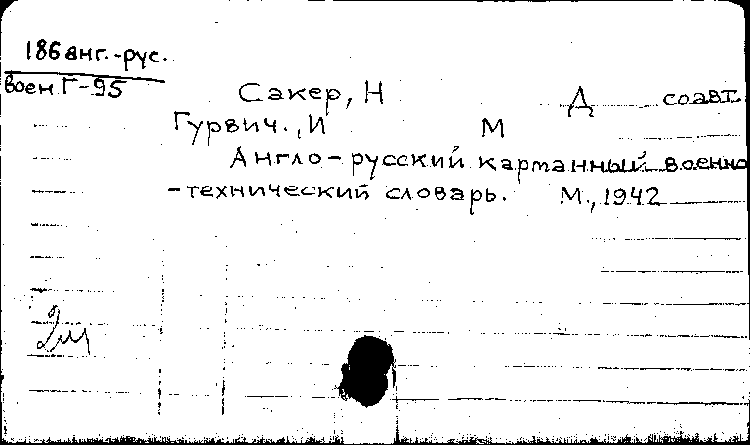 186 анг.-рус.
воен Г-95
Сакер, Н Д соавт.
Гурвич., И М
Англо-русский карманный военно
-технический словарь. М., 1942